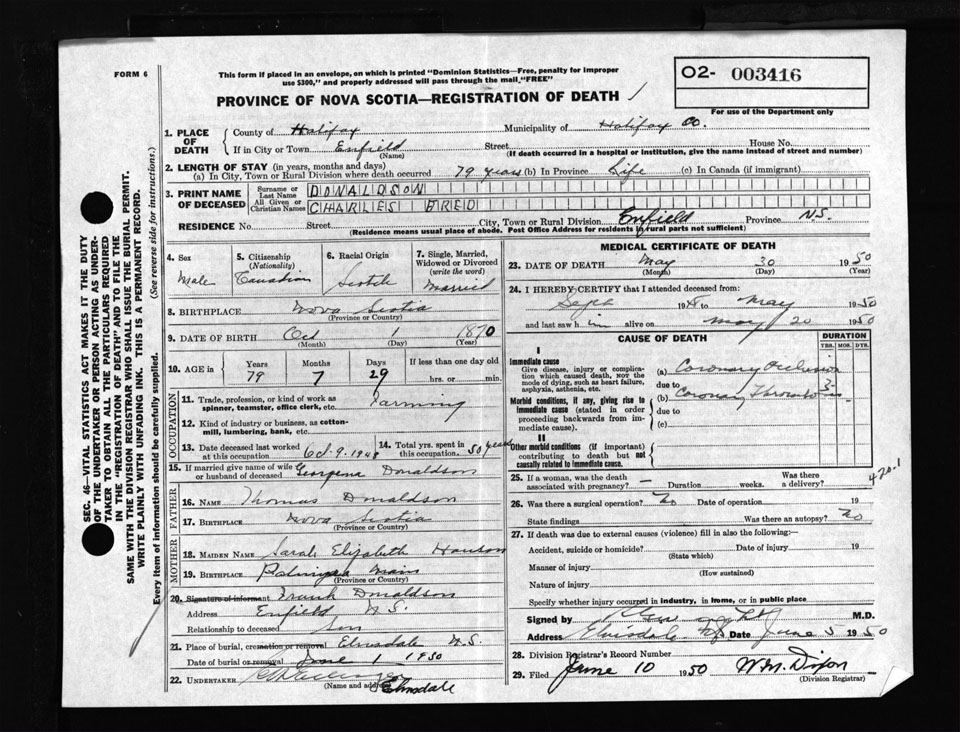 FORM 6
This form if placed in an envelope, on which is printed "Dominion Statistics—Free, penalty for improper
use $300," and properly addressed will pass through the mail "FREE"
O2- 003416
For use of the Department only
PROVINCE OF NOVA SCOTIA—REGISTRATION OF DEATH
1. PLACE OF DEATH
County of Halifax Municipality of Halifax Co.
If in City or Town Enfield Street House No.
(Name) (If death occurred in a hospital or institution, give the name instead of street and number)
2. LENGTH OF STAY (in years, months and days)
(a) In City, Town or Rural Division where death occurred 79 years (b) In Province Life (c) In Canada (if immigrant)
3. PRINT NAME OF DECEASED
Surname or Last Name DONALDSON
All Given or Christian Names CHARLES FRED
RESIDENCE No. Street City, Town or Rural Division Enfield Province N.S.
(Residence means usual place of abode. Post Office Address for residents in rural parts not sufficient)
4. Sex
Male
5. Citizenship (Nationality)
Canadian
6. Racial Origin
Scotch
7. Single, Married, Widowed or Divorced (write the word)
Married
8. BIRTHPLACE Nova Scotia
(Province or Country)
9. DATE OF BIRTH Oct 1 1870
(Month) (Day) (Year)
10. AGE in Years Months Days If less than one day old
79 7 29 hrs. or min.
OCCUPATION
11. Trade, profession, or kind of work as spinner, teamster, office clerk, etc. Farming
12. Kind of industry or business, as cotton-mill, lumbering, bank, etc.
13. Date deceased last worked at this occupation Oct. 9. 1948
14. Total yrs. spent in this occupation. 50 years
15. If married give name of wife or husband of deceased Georgena Donaldson
FATHER
16. NAME Thomas Donaldson
17. BIRTHPLACE Nova Scotia
(Province or Country)
MOTHER
18. MAIDEN NAME Sarah Elizabeth
19. BIRTHPLACE
(Province or Country)
20. Signature of informant Frank Donaldson
Address Enfield N.S.
Relationship to deceased Son
21. Place of burial, cremation or removal Elmsdale N.S.
Date of burial or removal June 1 1950
22. UNDERTAKER
(Name and address) Elmsdale
MEDICAL CERTIFICATE OF DEATH
23. DATE OF DEATH May 30 1950
(Month) (Day) (Year)
24. I HEREBY CERTIFY that I attended deceased from:
Sept 19 to May 1950
and last saw him alive on May 20 1950
CAUSE OF DEATH
DURATION
YRS. MOS. DYS.
I
Immediate cause
Give disease, injury or complication which caused death, NOT the mode of dying, such as heart failure, asphyxia, asthenia, etc.
(a) Coronary Occlusion
due to
Morbid conditions, if any, giving rise to immediate cause (stated in order proceeding backwards from immediate cause).
(b) Coronary
due to
(c)
II
Other morbid conditions (if important) contributing to death but not causally related to immediate cause.
420.1
25. If a woman, was the death associated with pregnancy? — Duration weeks. Was there a delivery?
26. Was there a surgical operation? No Date of operation 19
State findings Was there an autopsy? No
27. If death was due to external causes (violence) fill in also the following:—
Accident, suicide or homicide? Date of injury 19
(State which)
Manner of injury
(How sustained)
Nature of injury
Specify whether injury occurred in industry, in home, or in public place
Signed by M.D.
Address Elmsdale Date June 5 1950
28. Division Registrar's Record Number
29. Filed June 10 1950 W.M. Dixon
(Division Registrar)
SEC. 46—VITAL STATISTICS ACT MAKES IT THE DUTY
OF THE UNDERTAKER OR PERSON ACTING AS UNDERTAKER
TO OBTAIN ALL THE PARTICULARS REQUIRED
IN THE "REGISTRATION OF DEATH" AND TO FILE THE
SAME WITH THE DIVISION REGISTRAR WHO SHALL ISSUE THE BURIAL PERMIT.
WRITE PLAINLY WITH UNFADING INK. THIS IS A PERMANENT RECORD.
Every item of information should be carefully supplied. (See reverse side for instructions.)